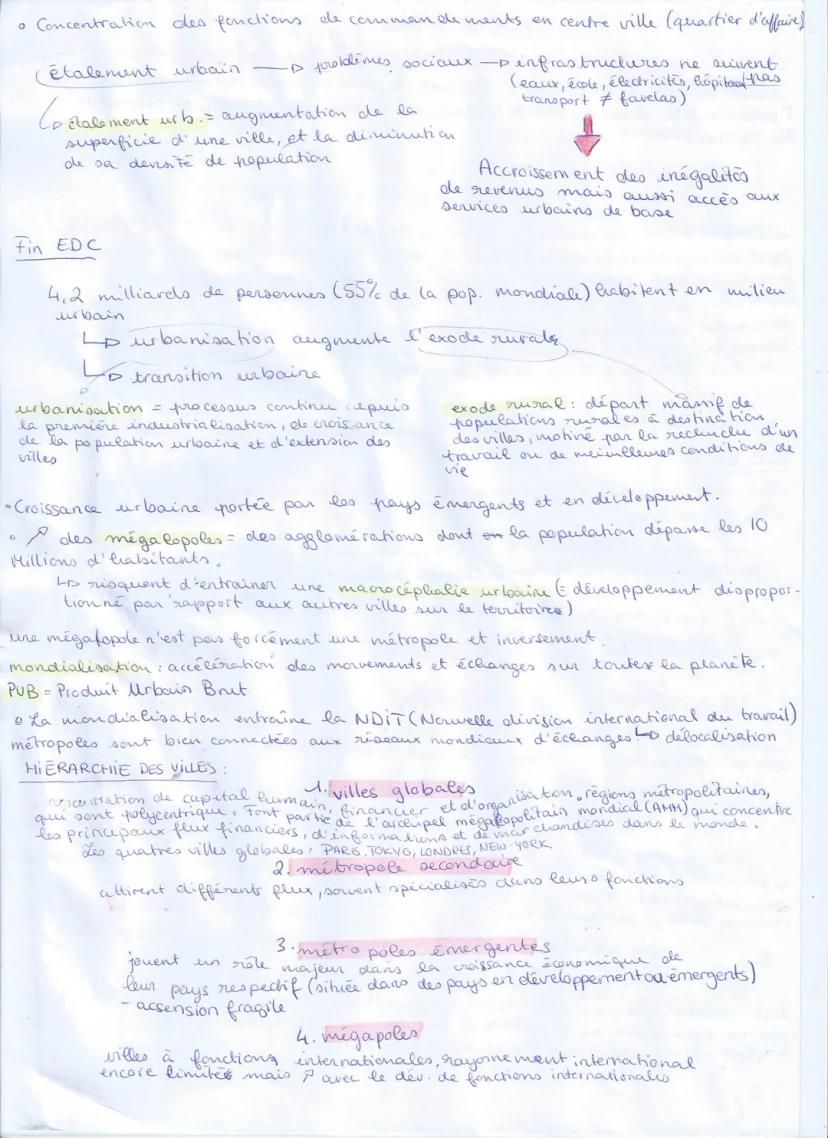 • Concentration des fonctions de commandements en centre ville (quartier d'affaire)
étalement urbain —▷ problèmes sociaux —▷ infrastructures ne suivent
(eaux, école, électricités, hôpitaux pas
transport ≠ favelas)
↳ étalement urb. = augmentation de la
superficie d'une ville, et la diminution
de sa densité de population
Accroissement des inégalités
de revenus mais aussi accès aux
services urbains de base
Fin EDC
4,2 milliards de personnes (55% de la pop. mondiale) habitent en milieu
urbain
↳ urbanisation augmente l'exode rurale
↳ transition urbaine
urbanisation = processus continu depuis
la première industrialisation, de croissance
de la population urbaine et d'extension des
villes
exode rural : départ massif de
populations rurales à destination
des villes, motivé par la recherche d'un
travail ou de meilleures conditions de
vie
• Croissance urbaine portée par les pays émergents et en développement.
• ↗ des mégalopoles = des agglomérations dont la population dépasse les 10
Millions d'habitants.
↳ risquent d'entrainer une macrocéphalie urbaine (= développement dispropor-
tionné par rapport aux autres villes sur le territoires)
une mégalopole n'est pas forcément une métropole et inversement.
mondialisation : accélération des mouvements et échanges sur toutes la planète.
PUB = Produit Urbain Brut
• La mondialisation entraîne la NDiT (Nouvelle division international du travail)
métropoles sont bien connectées aux réseaux mondiaux d'échanges ↳ délocalisation
HiÉRARCHIE DES VILLES :
1. villes globales
concentration de capital humain, financier et d'organisation. régions métropolitaines,
qui sont polycentrique. Font partie de l'archipel mégalopolitain mondial (AMM) qui concentre
les principaux flux financiers, d'informations et de marchandises dans le monde.
Les quatres villes globales : PARIS, TOKYO, LONDRES, NEW-YORK
2. métropole secondaire
attirent différents flux, souvent spécialisés dans leurs fonctions
3. métropoles émergentes
jouent un rôle majeur dans la croissance économique de
leur pays respectif (située dans des pays en développement ou émergents)
- acsension fragile
4. mégapoles
villes à fonctions internationales, rayonnement international
encore limités mais ↗ avec le dév. de fonctions internationales